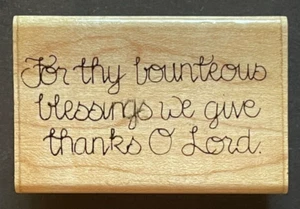 For thy bounteous
blessings we give
thanks O Lord.